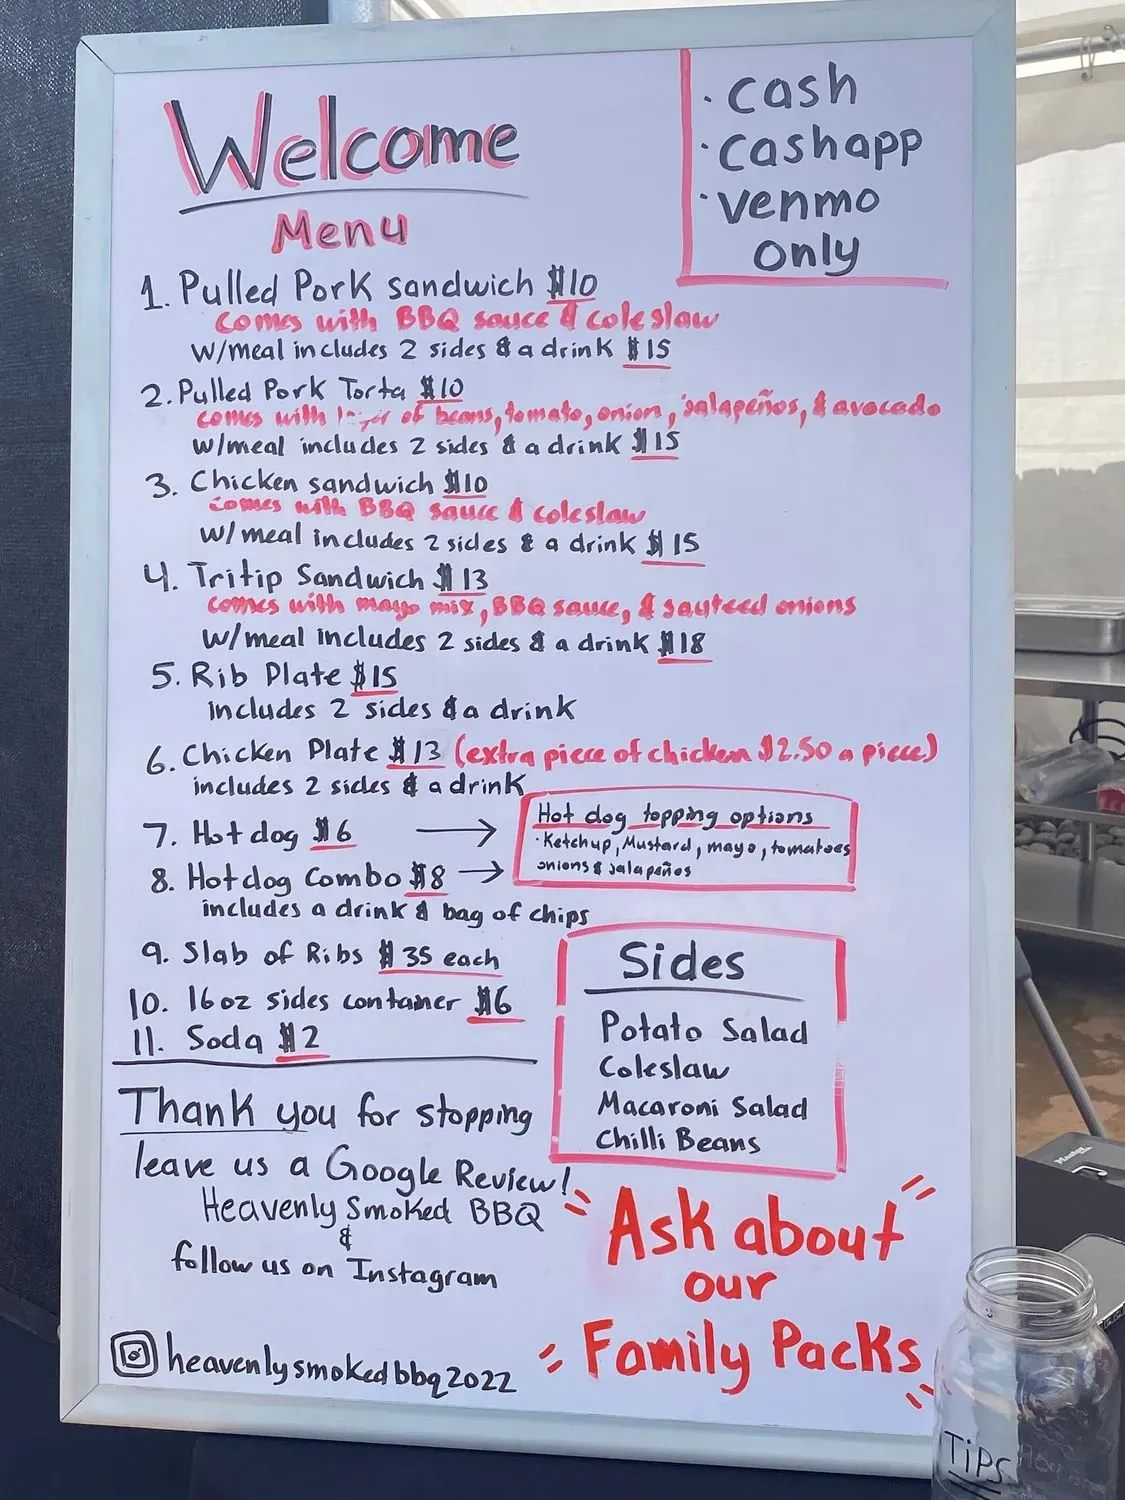 Welcome
Menu
· cash
· cashapp
· venmo
only
1. Pulled Pork sandwich $10
comes with BBQ sauce & coleslaw
w/meal includes 2 sides & a drink $15
2. Pulled Pork Torta $10
comes with layer of beans, tomato, onion, jalapeños, & avocado
w/meal includes 2 sides & a drink $15
3. Chicken sandwich $10
comes with BBQ sauce & coleslaw
w/meal includes 2 sides & a drink $15
4. Tritip Sandwich $13
comes with mayo mix, BBQ sauce, & sauteed onions
w/meal includes 2 sides & a drink $18
5. Rib Plate $15
includes 2 sides & a drink
6. Chicken Plate $13 (extra piece of chicken $2.50 a piece)
includes 2 sides & a drink
7. Hot dog $6 →
8. Hotdog Combo $8 →
includes a drink & bag of chips
Hot dog topping options
· Ketchup, Mustard, mayo, tomatoes
onions & jalapeños
9. Slab of Ribs $35 each
10. 16oz sides container $6
11. Soda $2
Sides
Potato Salad
Coleslaw
Macaroni Salad
Chilli Beans
Thank you for stopping
leave us a Google Review!
Heavenly Smoked BBQ
&
follow us on Instagram
heavenlysmokedbbq2022
Ask about
our
Family Packs
TiPS